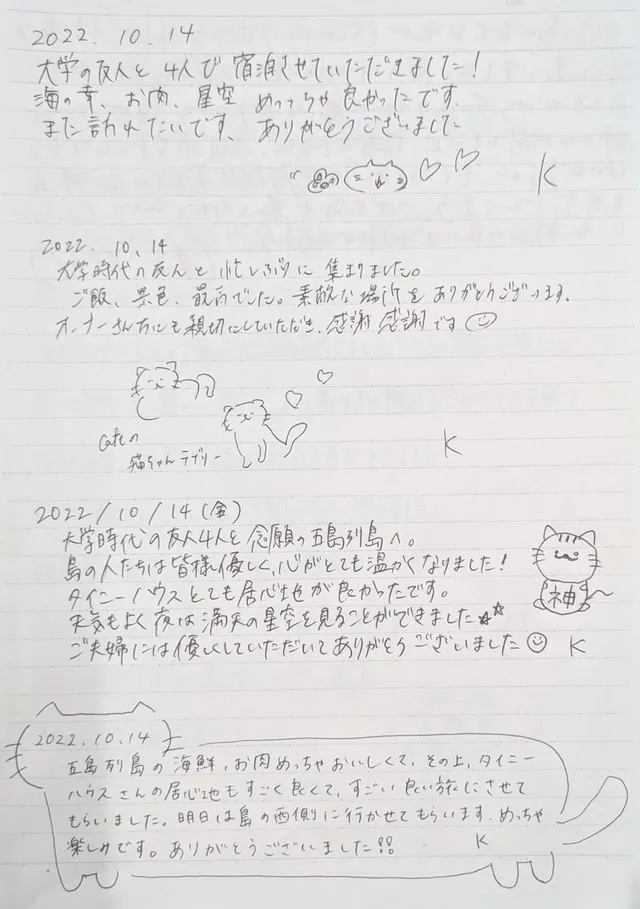 2022. 10. 14
大学の友人と4人で宿泊させていただきました!
海の幸、お肉、星空 めっっちゃ良かったです.
また訪れたいです、ありがとうございました
K
2022. 10. 14
大学時代の友人と 忙しぶりに 集まりました。
ご飯、景色、最高でした。素敵な場所をありがとうございます.
オーナーさん方にも親切にしていただき、感謝感謝です
Cafeの
猫ちゃんラブリー
K
2022/10/14(金)
大学時代の友人4人と念願の五島列島へ。
島の人たちは皆様優しく、心がとても温かくなりました!
タイニーハウスとても居心地が良かったです。
天気もよく夜は満天の星空を見ることができました☆☆
神
ご夫婦には優しくしていただいてありがとうございました
K
2022.10.14
五島列島の海鮮、お肉めっちゃおいしくて、その上、タイニー
ハウスさんの居心地もすごく良くて、すごい良い旅にさせて
もらいました。明日は島の西側に行かせてもらいます.めっちゃ
楽しみです。ありがとうございました!!
K